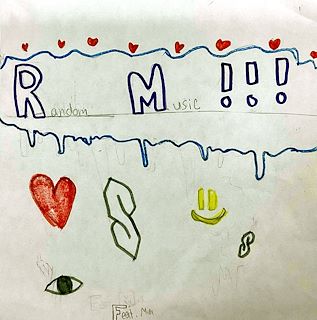 Random Music !!!
Feat. Min